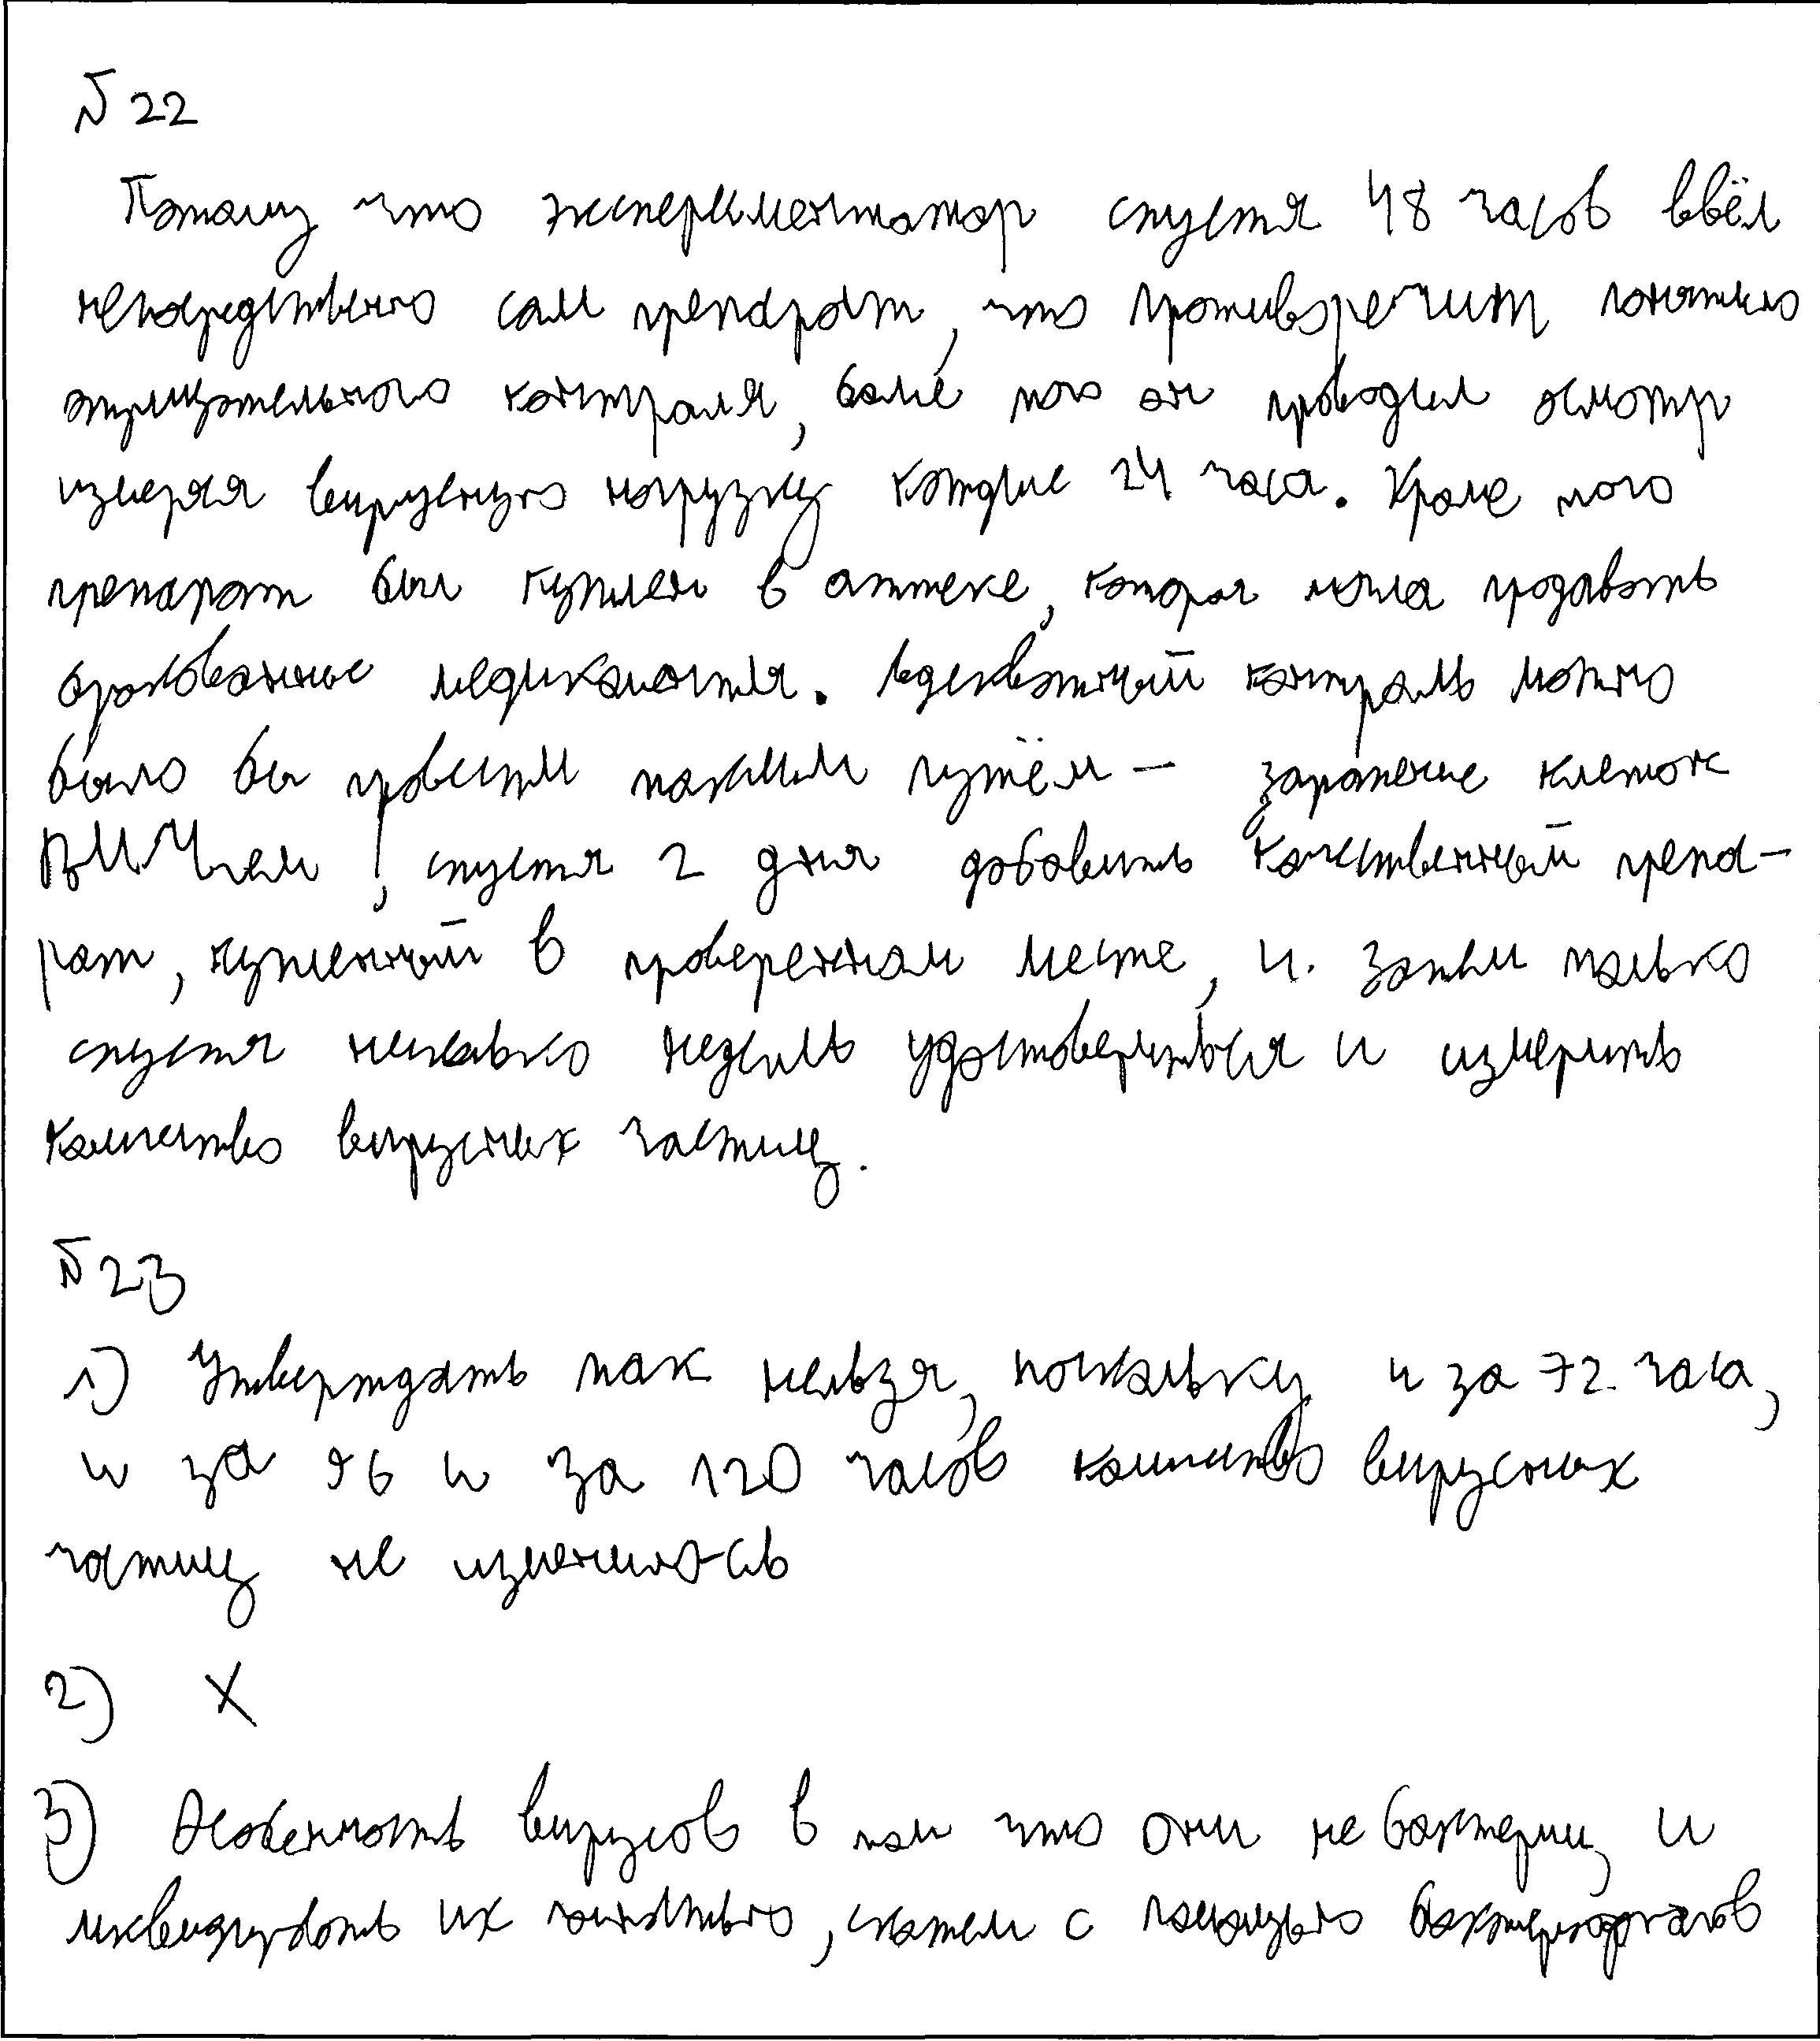 № 22
Потому что экспериментатор спустя 48 часов ввёл
непосредственно сам препарат, что противоречит понятию
отрицательного контроля, более того он проводил осмотр
измеряя вирусную нагрузку каждые 24 часа. Кроме того
препарат был куплен в аптеке, которая могла продавать
бракованные медикаменты. Адекватный контроль можно
было бы провести таким путём – заражение клеток
ВИЧем, спустя 2 дня добавить качественный препа-
рат, купленный в проверенном месте, и затем только
спустя несколько недель удостовериться и измерить
количество вирусных частиц.
№ 23
1) Утверждать так нельзя, поскольку и за 72 часа,
и за 96 и за 120 часов количество вирусных
частиц не изменилось
2) X
3) Особенность вирусов в том что они не бактерии, и
ликвидировать их полностью, скажем с помощью бактериофагов